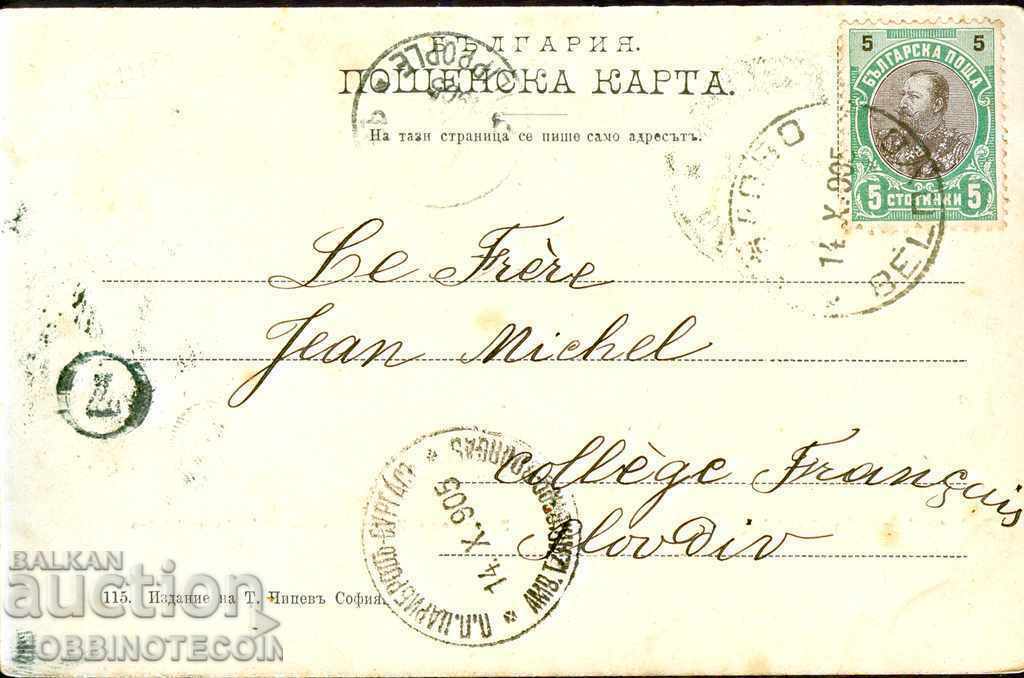 БЪЛГАРИЯ.
ПОЩЕНСКА КАРТА.
На тази страница се пише само адресътъ.
5 5
БЪЛГАРСКА ПОЩА
5 СТОТИНКИ 5
14 X.905
BÉLO
PPOPLE
Le Frère
Jean Michel
Collège Français
Plovdiv
П.П.ЦАРИБРОДЪ-БУРГАСЪ
14. X. 905
AMB. TZARIBROD-BOURGAS
T
115. Издание на Т. Чипевъ София.
BALKAN
auction
HOBBINOTECOIN